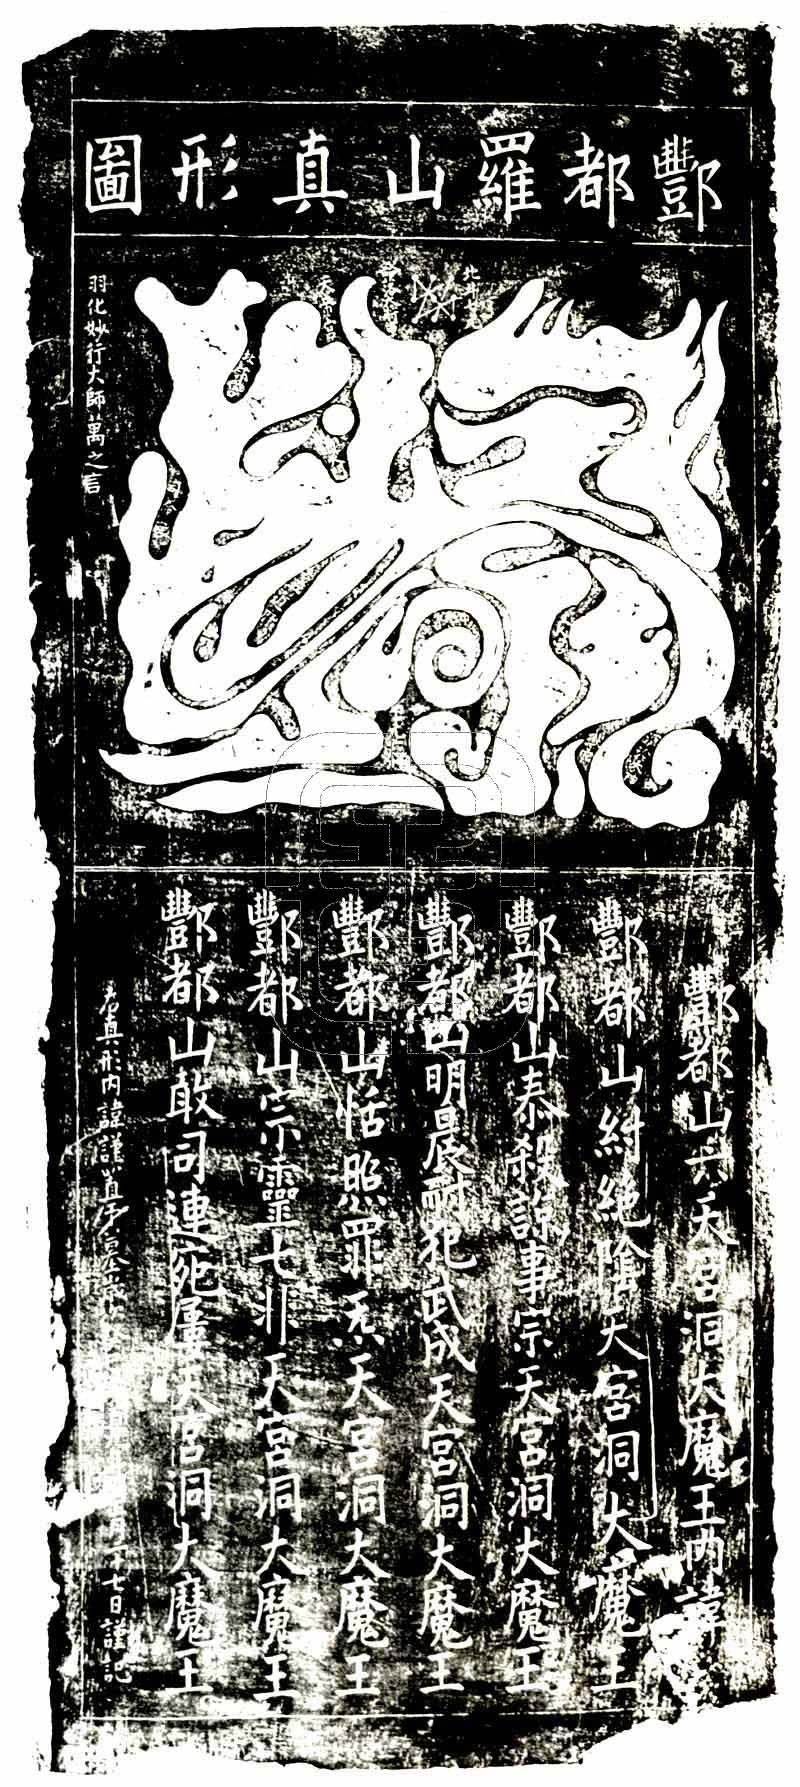 酆都羅山真形圖
北斗
羽化妙行大師萬之言
酆都山六天宮洞大魔王內諱
酆都山紂絕陰天宮洞大魔王
酆都山泰殺諒事宗天宮洞大魔王
酆都山明晨耐犯武成天宮洞大魔王
酆都山恬照罪炁天宮洞大魔王
酆都山宗靈七非天宮洞大魔王
酆都山敢司連宛屢天宮洞大魔王
右真形內諱謹
月二十七日謹記